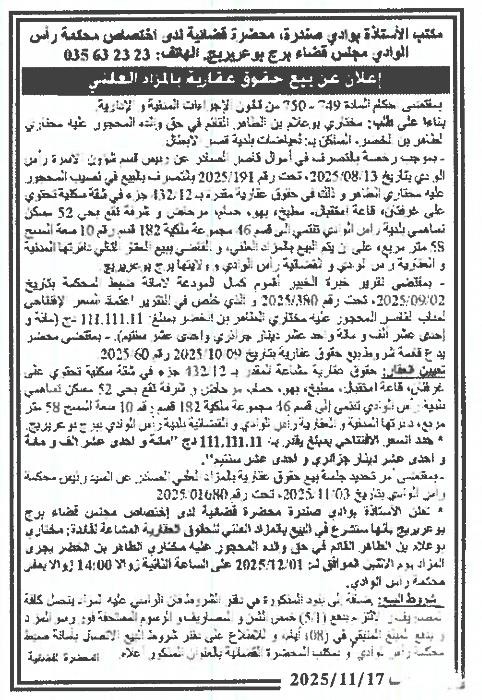 مكتب الأستاذة بوادي صندرة، محضرة قضائية لدى اختصاص محكمة رأس
الوادي مجلس قضاء برج بوعريريج. الهاتف: 035 63 23 23
إعلان عن بيع حقوق عقارية بالمزاد العلني
بمقتضى أحكام المادة 749 - 750 من قانون الإجراءات المدنية و الإدارية.
بناءا على طلب: مختاري بوعلام بن الطاهر القائم في حق والده المحجور عليه مختاري
الطاهر بن لخضر، الساكن بـ: بلدية قصر
- بموجب رخصة بالتصرف في أموال قاصر الصادر عن رئيس قسم شؤون الأسرة رأس
الوادي بتاريخ 2025/08/13، تحت رقم 2025/191 بالتصرف بالبيع في نصيب المحجور
عليه مختاري الطاهر و ذلك في حقوق عقارية مقدرة بـ 432/12 جزء في شقة سكنية تحتوي
على غرفتان، قاعة استقبال، مطبخ، بهو، حمام، مرحاض و شرفة تقع بحي 52 مسكن
تساهمي بلدية رأس الوادي تنتمي إلى قسم 46 مجموعة ملكية 182 قسم رقم 10 سعة المسح
58 متر مربع، على أن يتم البيع بالمزاد العلني، و القاضي ببيع العقار الكائن بدائرتها المدنية
و العقارية رأس الوادي و القضائية رأس الوادي و ولايتها برج بوعريريج
- بمقتضى تقرير خبرة الخبير أقسوم كمال المودعة لأمانة ضبط المحكمة بتاريخ
2025/09/02، تحت رقم 2025/380 و الذي خلص في التقرير اعتماد السعر الإفتتاحي
لمناب القاصر المحجور عليه مختاري الطاهر بن لخضر بمبلغ: 111.111.11 دج (مائة و
إحدى عشر ألف و مائة واحد عشر دينار جزائري واحدى عشر سنتيم). - بمقتضى محضر
إيداع قائمة شروط بيع حقوق عقارية بتاريخ 2025/10/09 رقم 2025/60
تعيين العقار: حقوق عقارية مشاعة المقدر بـ 432/12 جزء في شقة سكنية تحتوي على
غرفتان، قاعة استقبال، مطبخ، بهو، حمام، مرحاض و شرفة تقع بحي 52 مسكن تساهمي
بلدية رأس الوادي تنتمي إلى قسم 46 مجموعة ملكية 182 قسم رقم 10 سعة المسح 58 متر
مربع، دائرتها المدنية و العقارية رأس الوادي و القضائية بلدية رأس الوادي برج بوعريريج.
* حدد السعر الافتتاحي بمبلغ يقدر بـ: 111.111.11 دج "مائة و احدى عشر ألف و مائة
و احدى عشر دينار جزائري و احدى عشر سنتيم".
- بمقتضى أمر تحديد جلسة بيع حقوق عقارية بالمزاد العلني الصادر عن السيد رئيس محكمة
رأس الوادي بتاريخ 2025/11/03، تحت رقم 2025/01680
* تعلن الأستاذة بوادي صندرة محضرة قضائية لدى إختصاص مجلس قضاء برج
بوعريريج بأنها ستشرع في البيع بالمزاد العلني للحقوق العقارية المشاعة لفائدة: مختاري
بوعلام بن الطاهر القائم في حق والده المحجور عليه مختاري الطاهر بن الخضر يجرى
المزاد يوم الاثنين الموافق لـ: 2025/12/01 على الساعة الثانية زوالا 14:00 زوالا بمقر
محكمة رأس الوادي.
شروط البيع: إضافة إلى بنود المذكورة في دفتر الشروط فإن الراسي عليه المزاد يتحمل كافة
المصاريف و يلتزم بدفع (5/1) خمس الثمن و المصاريف و الرسوم المستحقة فور رسو المزاد
و يدفع المبلغ المتبقي في (08) أيام، و للاطلاع على دفتر شروط البيع الاتصال بأمانة ضبط
محكمة رأس الوادي و بمكتب المحضرة القضائية بالعنوان المذكور أعلاه.
المحضرة القضائية
2025/11/17